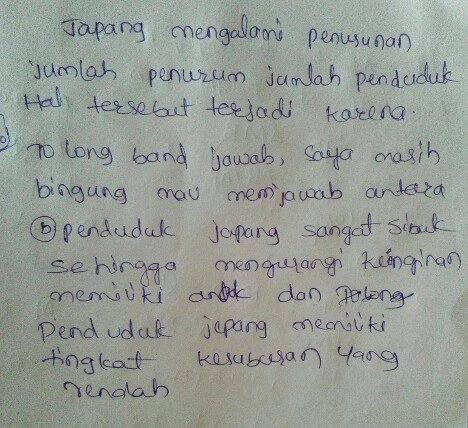 Japang mengalami penusunan
jumlah penurum jumlah penduduk
Hal tersebut terjadi karena.
To long band jawab, saya masih
bingung mau memjawab antara
b penduduk jopang sangat sibuk
sehingga mengurangi keinginan
memiliki anak dan
penduduk jepang memiliki
tingkat kesuburan yang
rendah